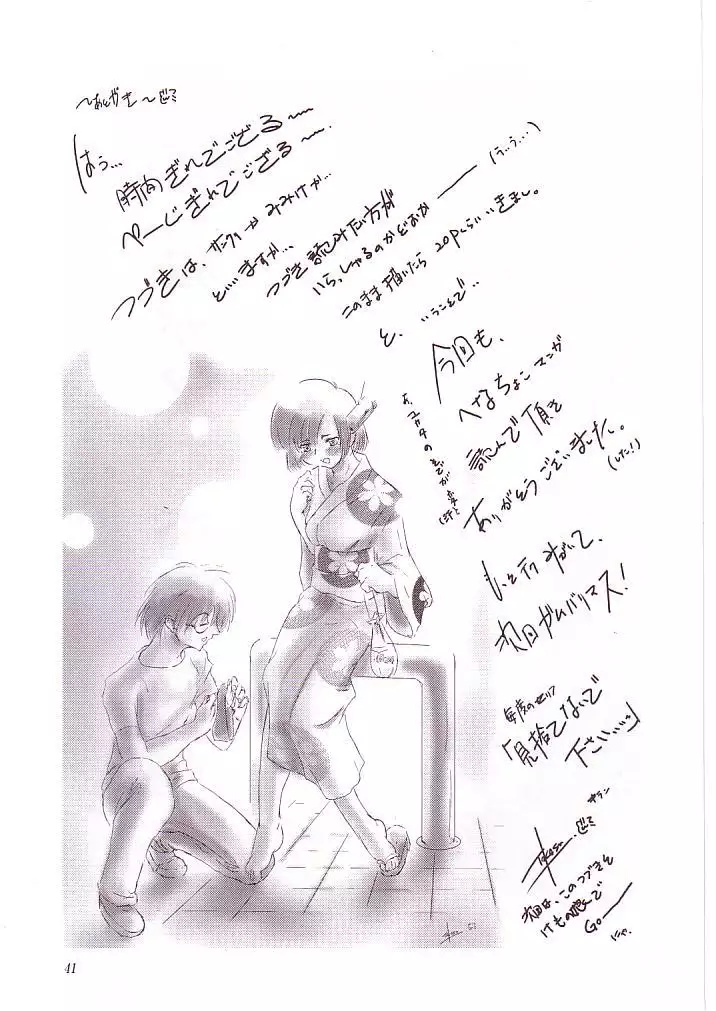 ～あとがき～
はぅ…
時間ぎれでござる～
ぺーじぎれでござる～.
つづきは、サンクリか みみけか…
といいますか…
つづき読みたい方が
いらっしゃるのかどおか——(う…う…)
このまま描いたら20Pくらいいきまし。
と、いうことで‥
今回も、
へなちょこマンガ
読んで頂き
ありがとうございました。
(した!)
あ、ユカタの
もっと行みがいて、
次回ガンバリマス!
毎度のセリフ
「見捨てないで
下さいいっ」
次回は、このつづきと
けもの娘で
Go——
にゃ.
41